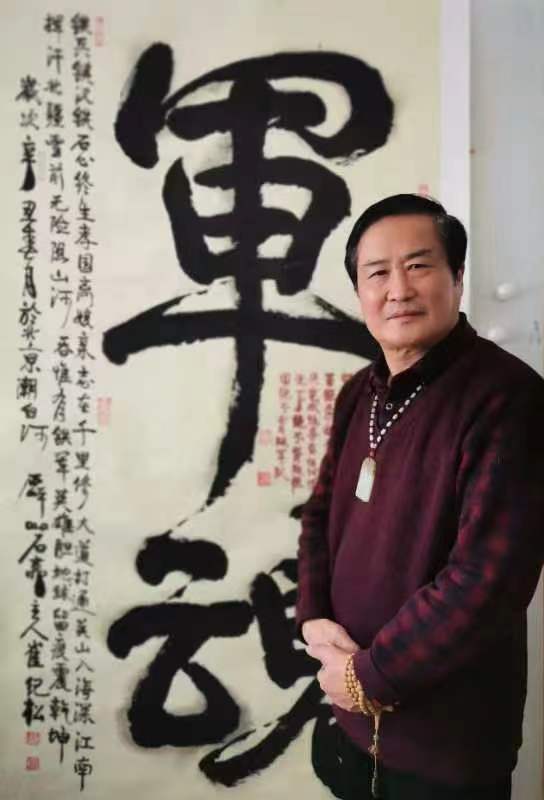 軍魂
铁兵铁汉铁石心终生孝国离娘亲志在千里修大道打通英山入海深江南
挥汗北疆雪前无险阻山河吞惟有铁军英雄胆地球留痕震乾坤
歲次辛丑年 月於北京潮白河 山石斋主人崔纪松